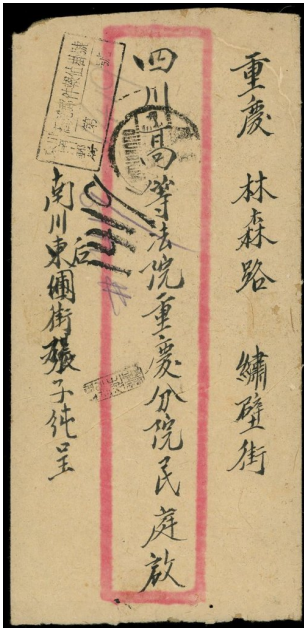 重慶 林森路 繡壁街
四川高等法院重慶分院民庭啟
南川東
街張子純呈
后